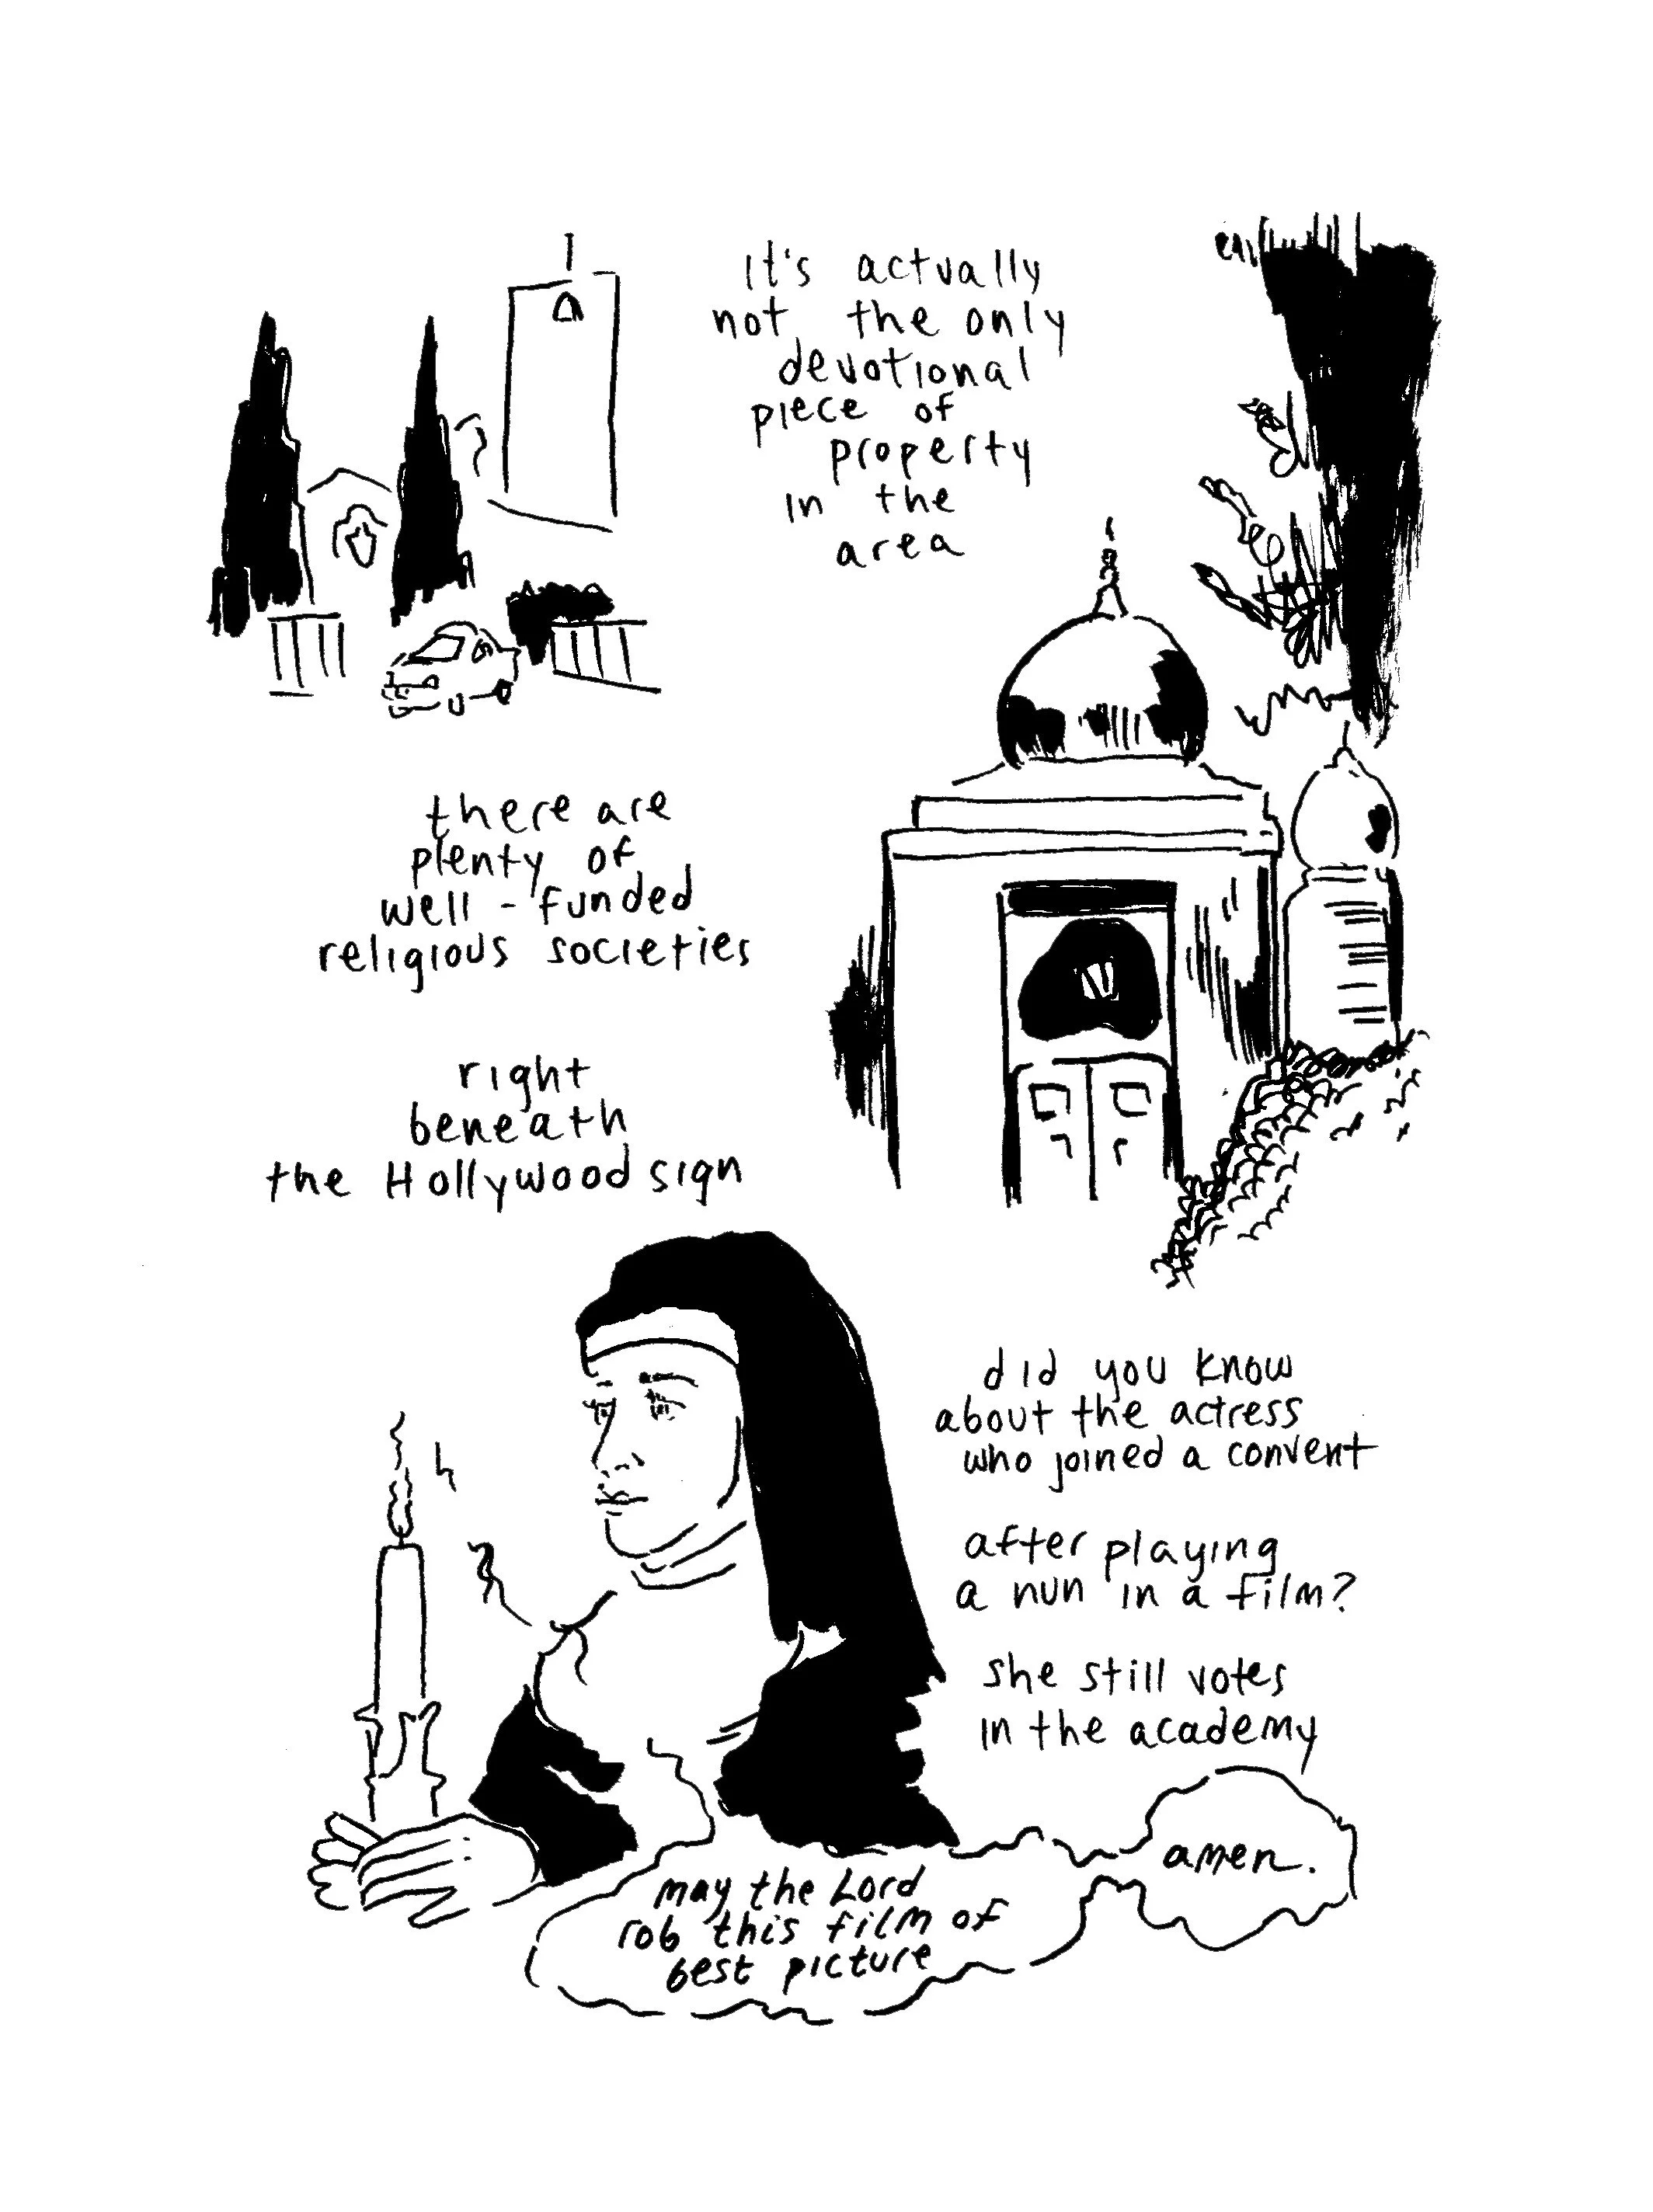 it's actually
not the only
devotional
piece of
property
in the
area
there are
plenty of
well-funded
religious societies
right
beneath
the Hollywood sign
did you know
about the actress
who joined a convent
after playing
a nun in a film?
she still votes
in the academy
may the Lord
rob this film of
best picture
amen.